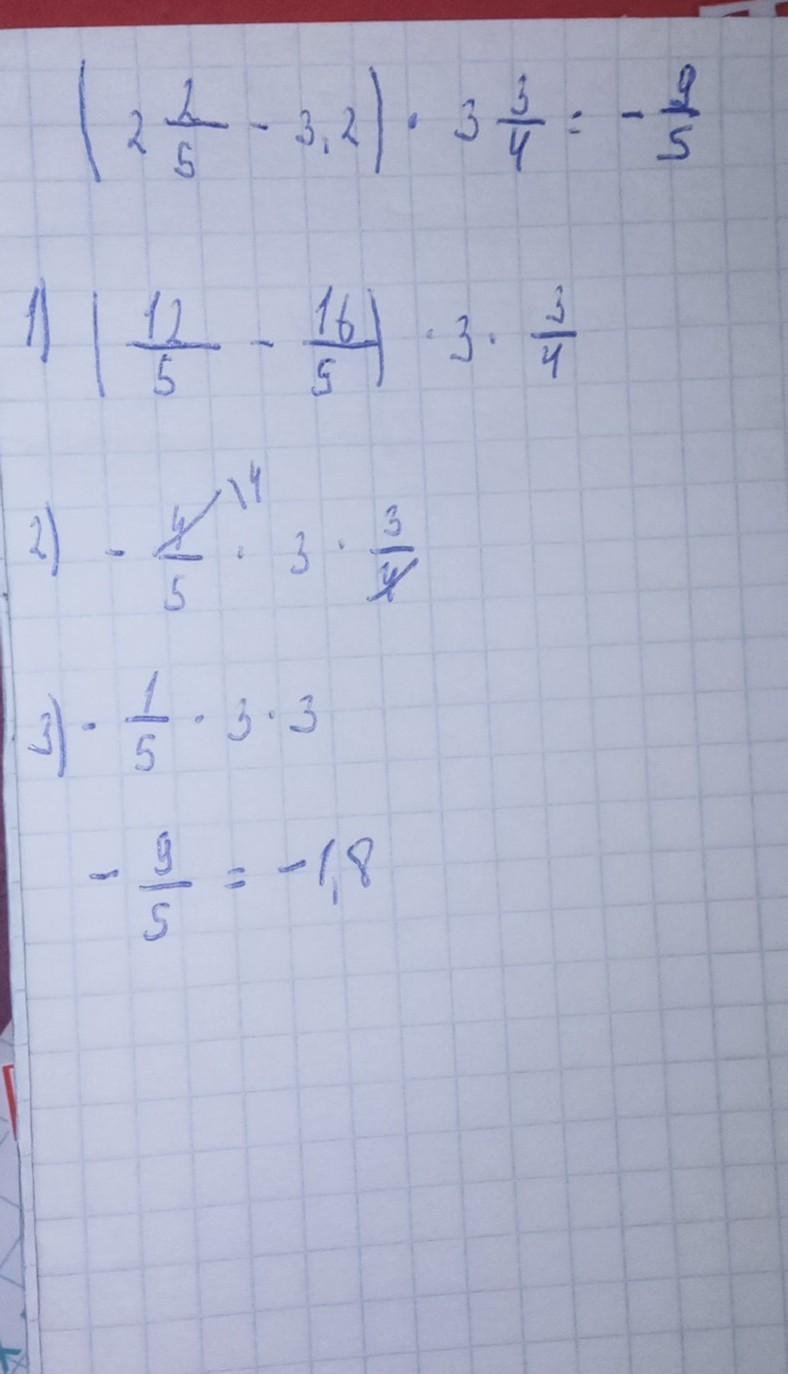 (2 2/5 - 3,2) · 3 3/4 = - 9/5
1) (12/5 - 16/5) · 3 · 3/4
2) - 4/5 \4 · 3 · 3/4
3) - 1/5 · 3 · 3
- 9/5 = -1,8